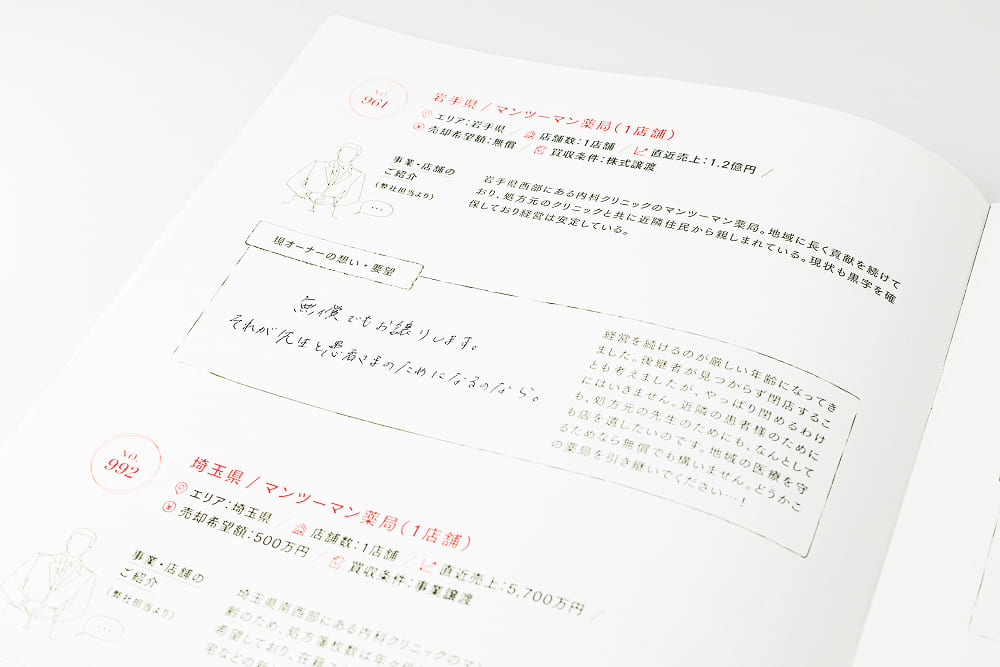 NO.
961
岩手県 / マンツーマン薬局(1店舗)
エリア:岩手県 / 店舗数:1店舗 / 直近売上:1.2億円 /
売却希望額:無償 / 買収条件:株式譲渡
事業・店舗の
ご紹介
(弊社担当より)
岩手県西部にある内科クリニックのマンツーマン薬局。地域に長く貢献を続けて
おり、処方元のクリニックと共に近隣住民から親しまれている。現状も黒字を確
保しており経営は安定している。
現オーナーの想い・要望
無償でもお譲りします。
それが先生と患者さまのためになるのなら。
経営を続けるのが厳しい年齢になってき
ました。後継者が見つからず閉店するこ
とも考えましたが、やっぱり閉めるわけ
にはいきません。近隣の患者様のために
も、処方元の先生のためにも、なんとして
も店を遺したいのです。地域の医療を守
るためなら無償でも構いません。どうかこ
の薬局を引き継いでください…!
NO.
992
埼玉県 / マンツーマン薬局(1店舗)
エリア:埼玉県 / 店舗数:1店舗 / 直近売上:5,700万円 /
売却希望額:500万円 / 買収条件:事業譲渡
事業・店舗の
ご紹介
(弊社担当より)
埼玉県南西部にある内科クリニックのマンツ
齢のため、処方箋枚数は年々
希望しており、在籍
宅などの